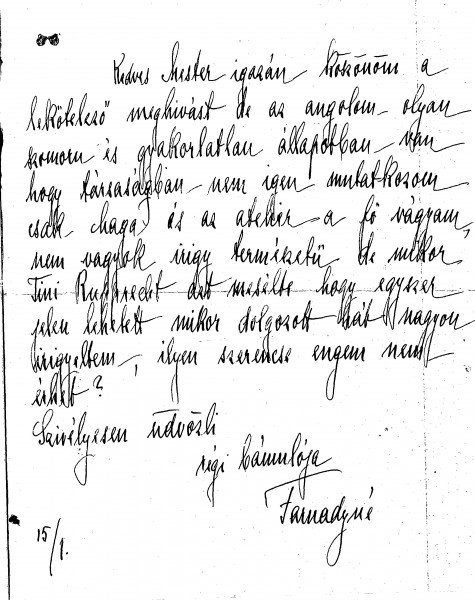 Kedves Mester igazán köszönöm a
lekötelező meghivást de az angolom olyan
szomoru és gyakorlatlan állapotban van
hogy társaságban nem igen mutatkozom
csak és az atelier a fő vágyam,
nem vagyok irigy természetü de mikor
Tini Rupprecht azt mesélte hogy egyszer
jelen lehetett mikor dolgozott hát nagyon
irigyeltem, ilyen szerencse engem nem
érhet?
Szivélyesen üdvözli
régi bámulója
Farnadyné
15/1.